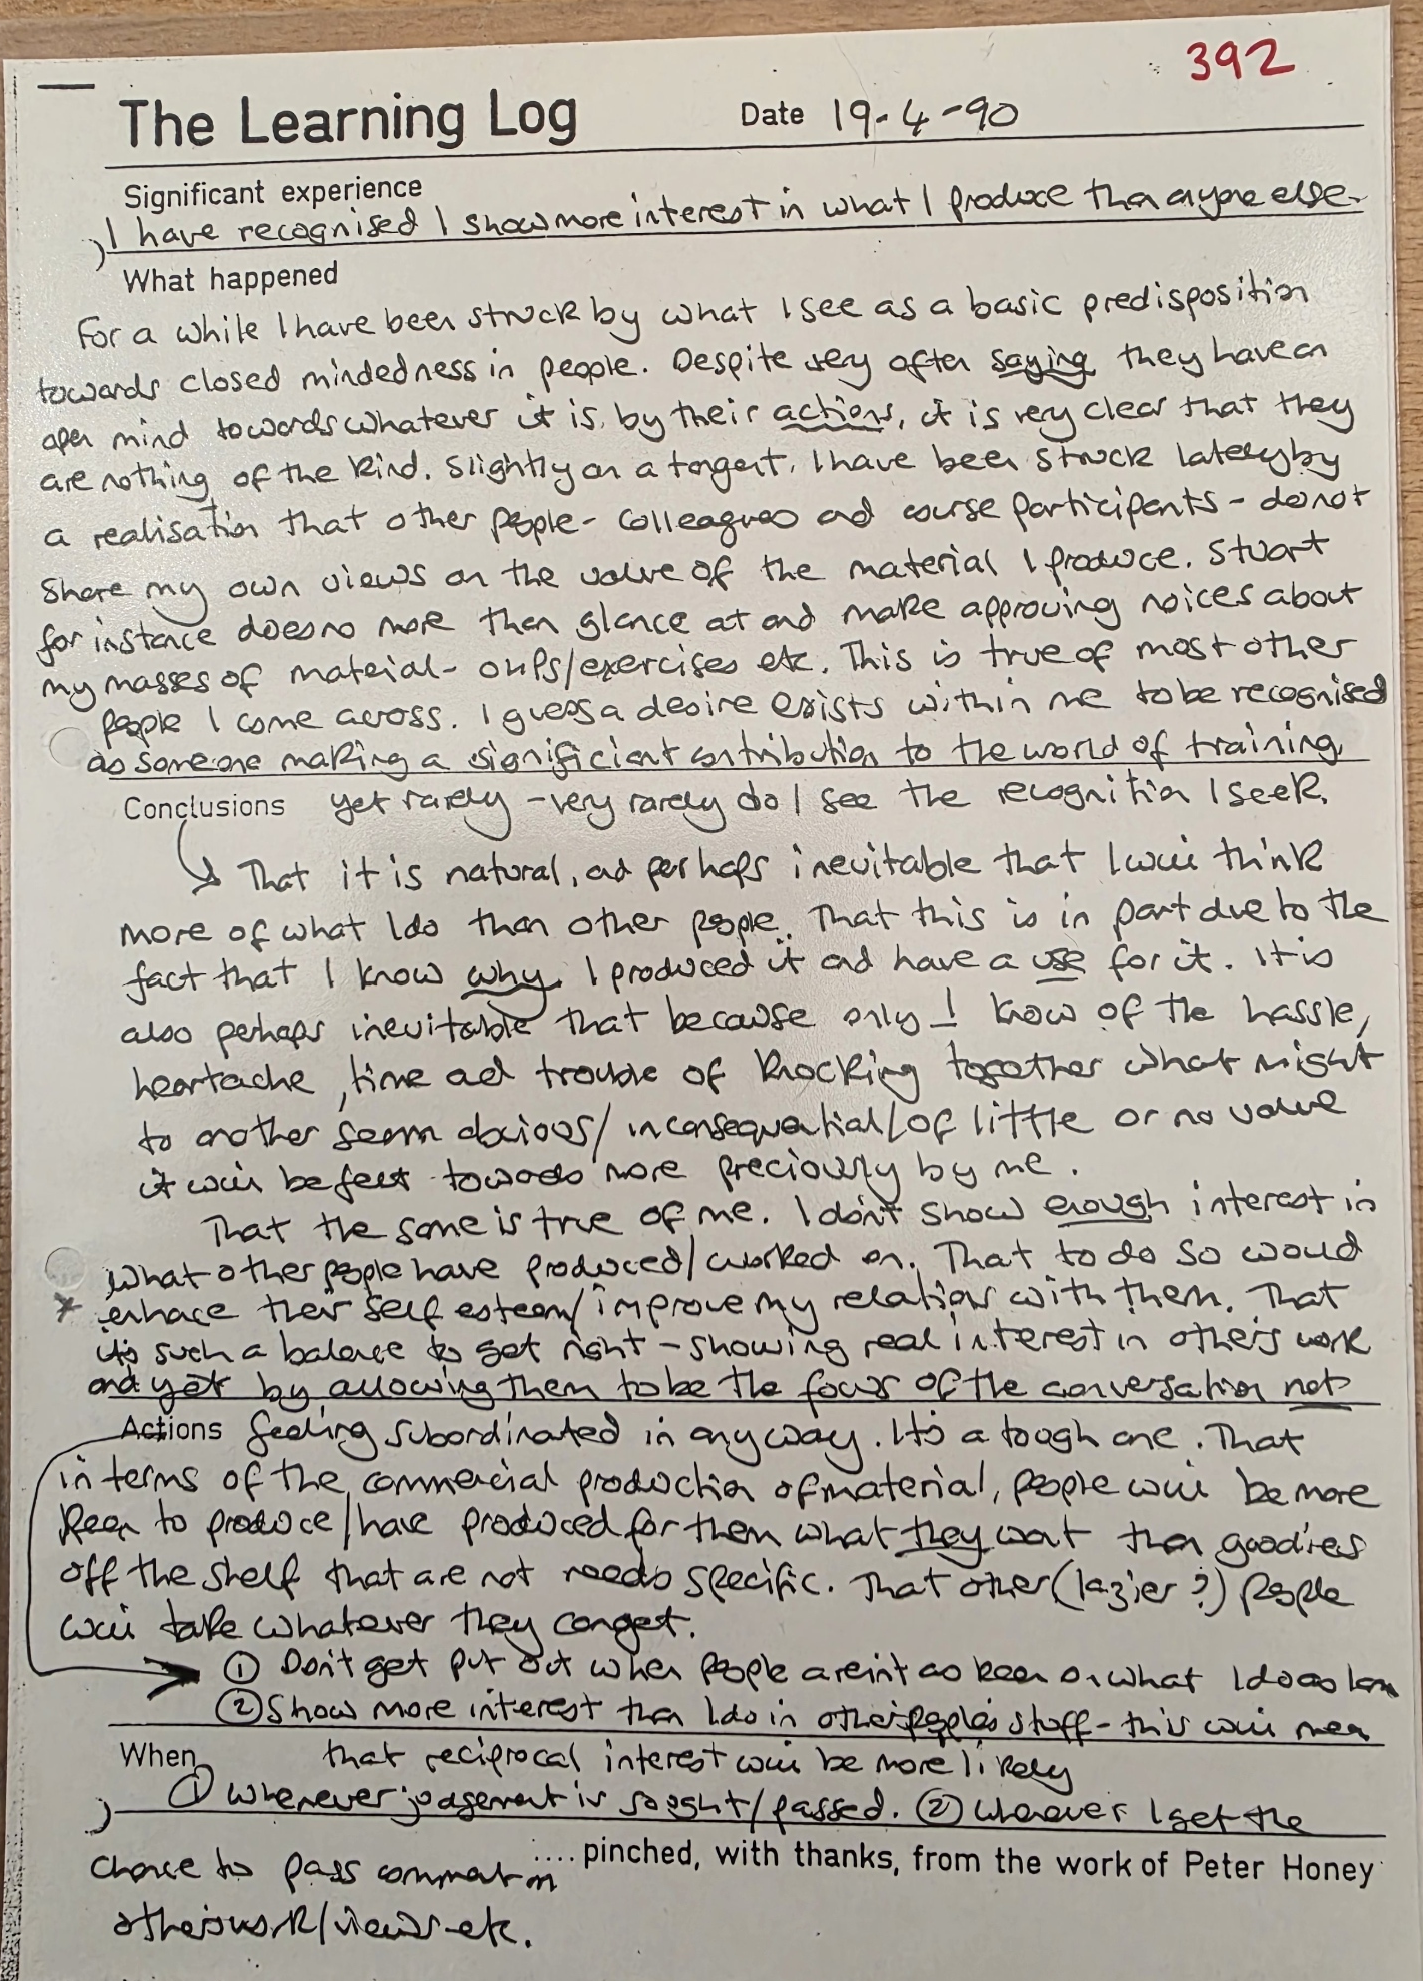 392
The Learning Log Date 19-4-90
Significant experience
I have recognised I show more interest in what I produce than anyone else.
What happened
For a while I have been struck by what I see as a basic predisposition
towards closed mindedness in people. Despite very often saying they have an
open mind towards whatever it is, by their actions, it is very clear that they
are nothing of the kind. Slightly on a tangent, I have been struck lately by
a realisation that other people - colleagues and course participants - do not
share my own views on the value of the material I produce. Stuart
for instance does no more than glance at and make approving noices about
my masses of material - OHPs/exercises etc. This is true of most other
people I come across. I guess a desire exists within me to be recognised
as someone making a significant contribution to the world of training,
Conclusions yet rarely - very rarely do I see the recognition I seek.
That it is natural, and perhaps inevitable that I will think
more of what I do than other people. That this is in part due to the
fact that I know why I produced it and have a use for it. It is
also perhaps inevitable that because only I know of the hassle,
heartache, time and trouble of knocking together what might
to another seem obvious/inconsequential/of little or no value
it will be felt towards more preciously by me.
That the same is true of me. I don't show enough interest in
what other people have produced/worked on. That to do so would
* enhace their self esteem/improve my relations with them. That
its such a balance to get right - showing real interest in other's work
and yet by allowing them to be the focus of the conversation not
Actions feeling subordinated in any way. It's a tough one. That
in terms of the commercial production of material, people will be more
keen to produce/have produced for them what they want than goodies
off the shelf that are not needs specific. That other (lazier?) people
will take whatever they can get.
① Don't get put out when people aren't as keen on what I do as I am
② Show more interest than I do in other people's stuff - this will mean
When that reciprocal interest will be more likely
① Whenever judgement is sought/passed. ② Whenever I get the
.... pinched, with thanks, from the work of Peter Honey
chance to pass comment on
other's work/views etc.